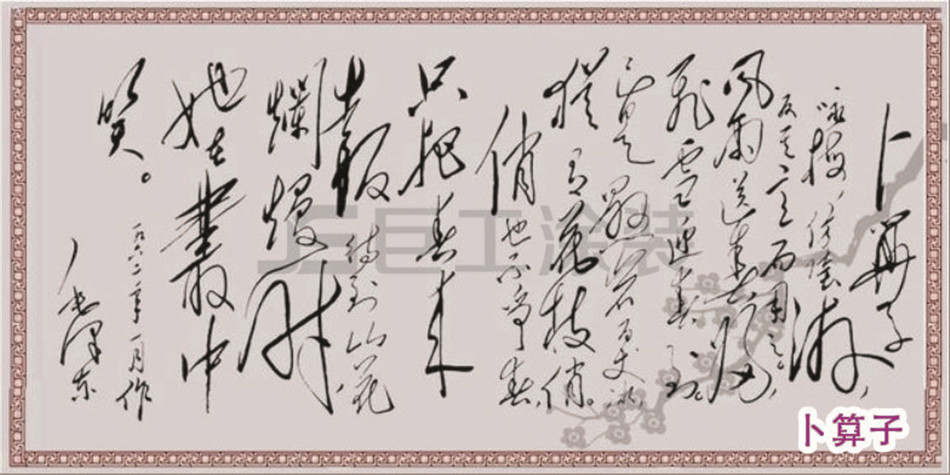 卜算子
咏梅，依陸游，
反其意而用之。
風雨送春歸，
飛雪迎春到。
已是懸崖百丈冰
猶有花枝俏。
俏也不争春，
只把春来
报 待到山花
爛熳时
她在叢中
笑。
一九六二年一月作
毛澤东
巨工涂装
卜算子